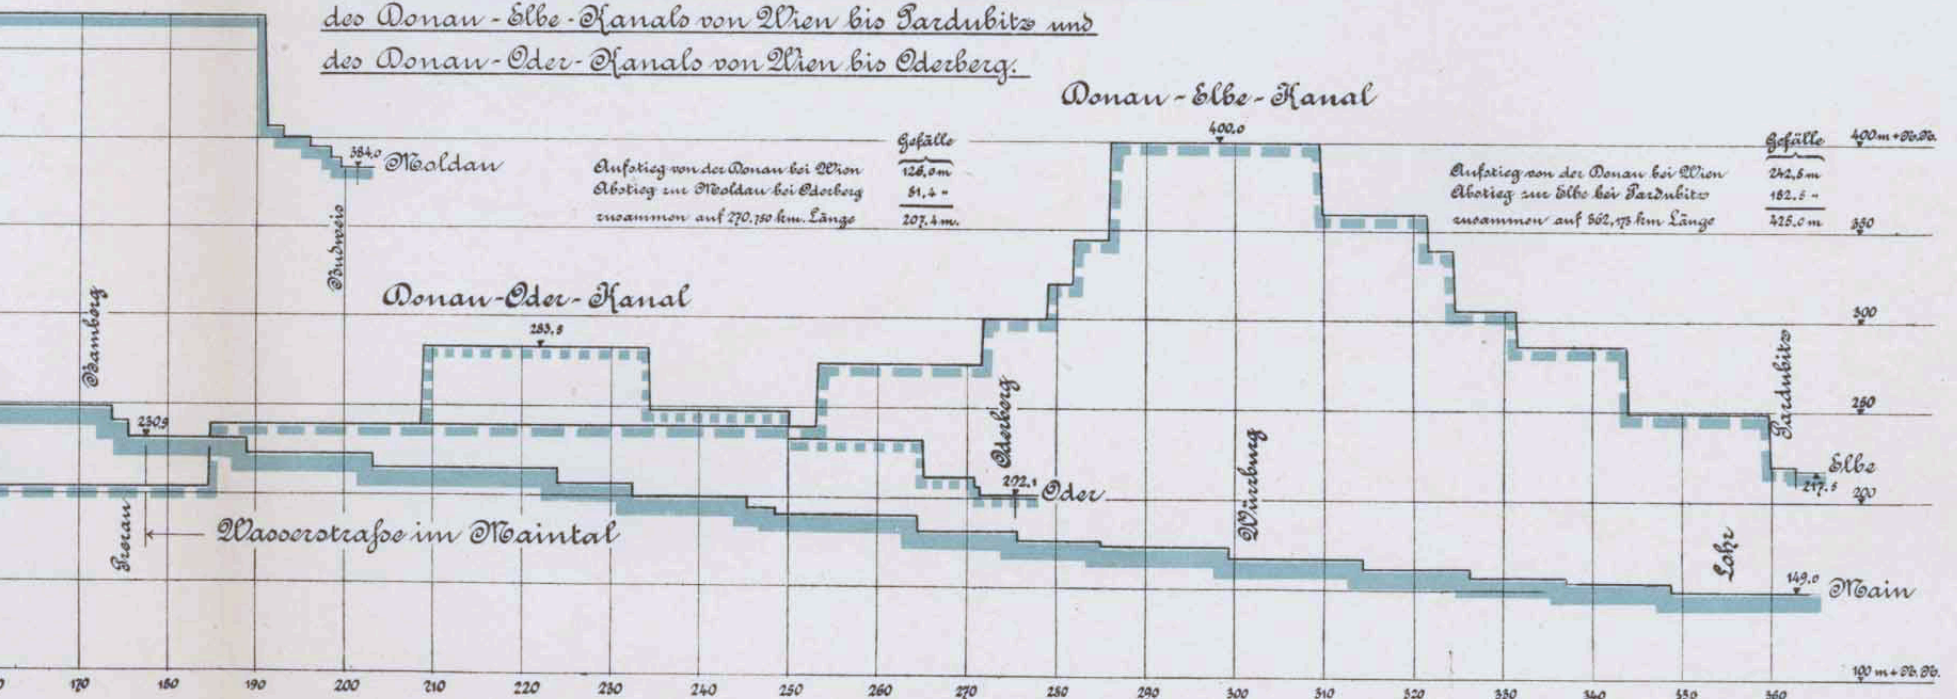 des Donau-Elbe-Kanals von Wien bis Pardubitz und
des Donau-Oder-Kanals von Wien bis Oderberg.
Donau-Elbe-Kanal
400,0
Gefälle
Aufstieg von der Donau bei Wien 126,0 m
Abstieg zur Moldau bei Oderberg 81,4 "
zusammen auf 270,750 km. Länge 207,4 m.
Gefälle
Aufstieg von der Donau bei Wien 242,5 m
Abstieg zur Elbe bei Pardubitz 182,5 "
zusammen auf 362,175 km Länge 425,0 m
400 m + N.N.
384,0 Moldau
Budweis
350
Bamberg
Donau-Oder-Kanal
283,5
300
Pardubitz
250
230,9
Oderberg
202,1 Oder
Würzburg
Elbe
217,5
200
Prerau
Wasserstraße im Maintal
Lohr
149,0 Main
100 m + N.N.
0 170 180 190 200 210 220 230 240 250 260 270 280 290 300 310 320 330 340 350 360